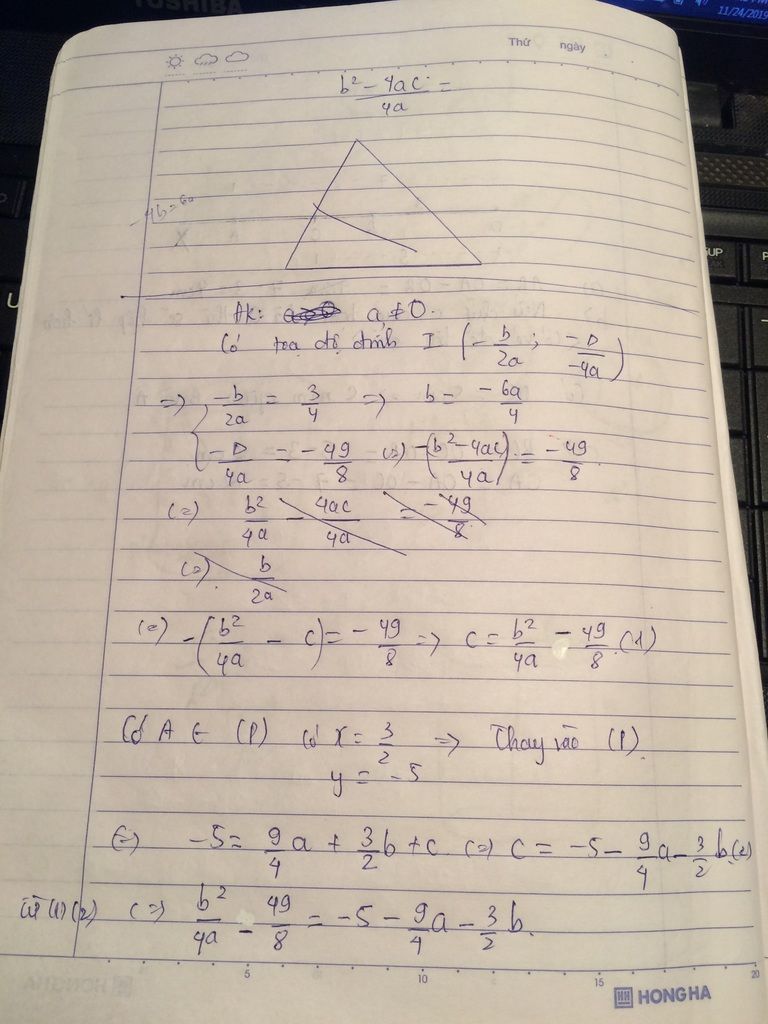 TOSHIBA
11/24/2019
Thứ ngày
b² - 4ac / 4a =
-4b = 6a
Đk: a ≠ 0.
Có toạ độ đỉnh I (-b/2a ; -Δ/-4a)
=> { -b/2a = 3/4 => b = -6a/4
-Δ/4a = -49/8 (=) -(b² - 4ac / 4a) = -49/8
(=) b²/4a - 4ac/4a = -49/8
(=) b/2a
(=) -(b²/4a - c) = -49/8 => c = b²/4a - 49/8 (1)
Có A ∈ (P) có x = 3/2 => Thay vào (P).
y = -5
(=) -5 = 9/4 a + 3/2 b + c (=) c = -5 - 9/4 a - 3/2 b (2)
từ (1) (2) (=) b²/4a - 49/8 = -5 - 9/4 a - 3/2 b.
5 10 15 20
HONG HA